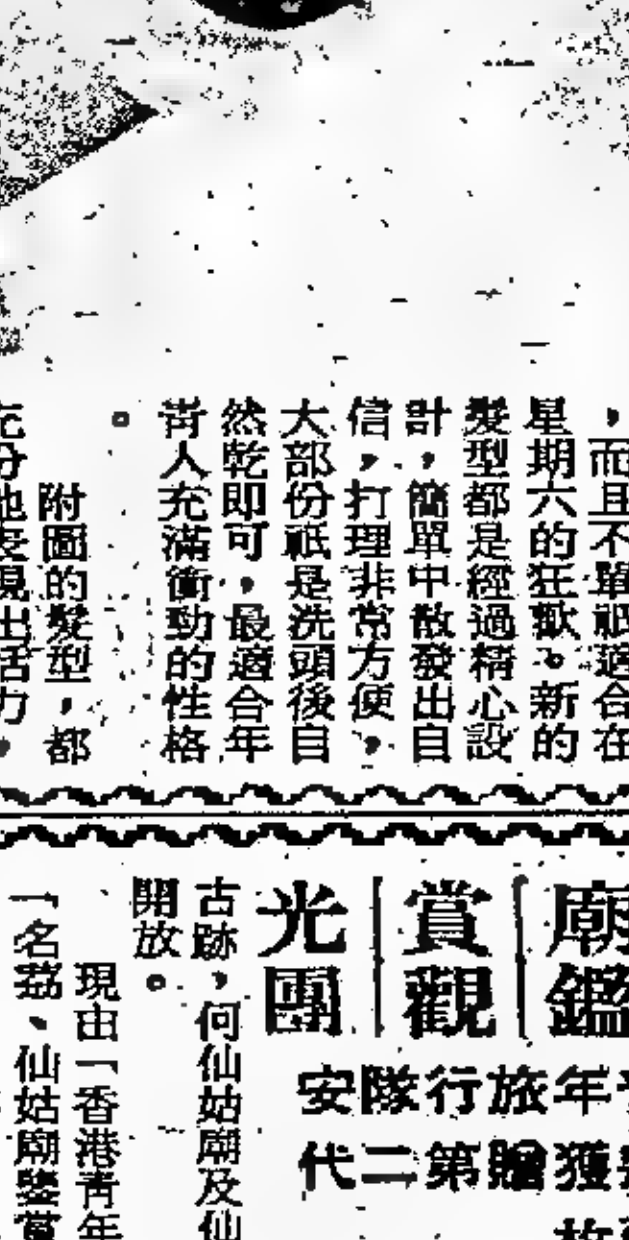 ，而且不單祇適合在
星期六的狂歡。新的
髮型都是經過精心設
計，簡單中散發出自
信，打理非常方便，
大部份祇是洗頭後自
然乾即可，最適合年
青人充滿衝動的性格
。
附圖的髮型，都
充分地表現出活力，
廟鑑
賞觀
光團
年獲
旅贈
行第
隊二
安代
古跡，何仙姑廟及仙
開放。
現由「香港青年
「名荔、仙姑廟鑒賞